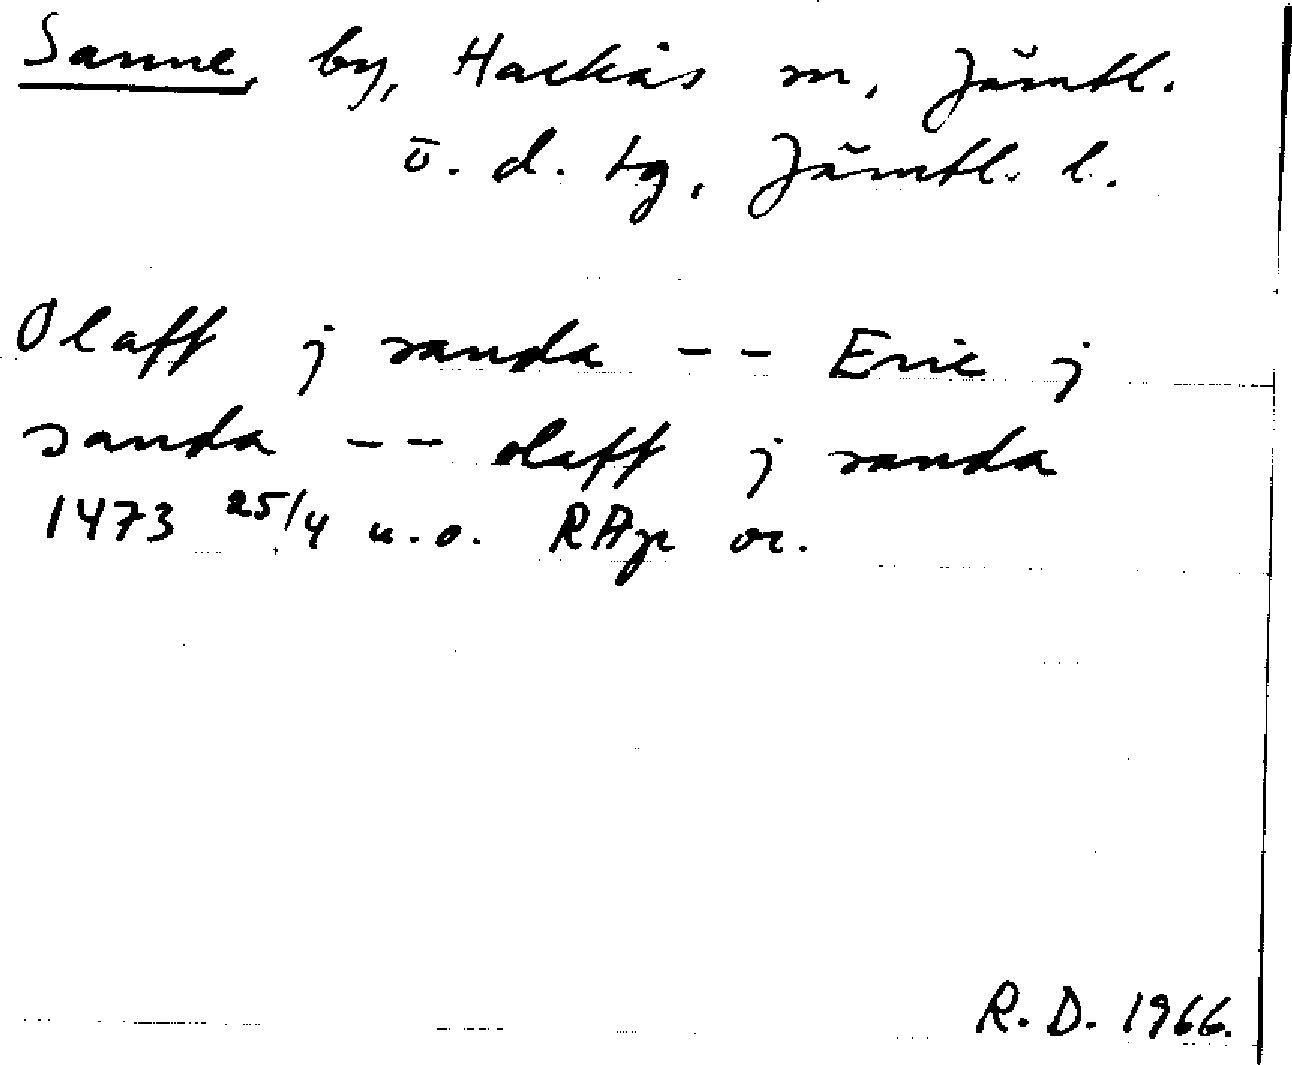 Sanne, by, Hackås sn, Jämtl.
ö. d. tg, Jämtl. l.
Olaff j sanda -- Eric j
sanda -- olaff j sanda
1473 25/4 u.o. RAp or.
R. D. 1966.